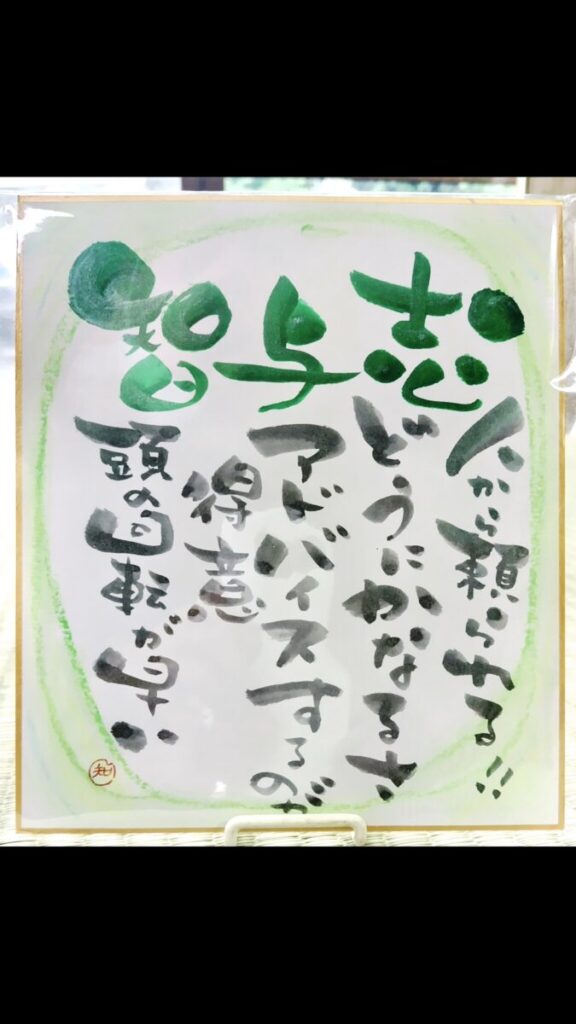 智与志
人から頼られる!!
どうにかなるさ
アドバイスするのが
得意
頭の回転が早い